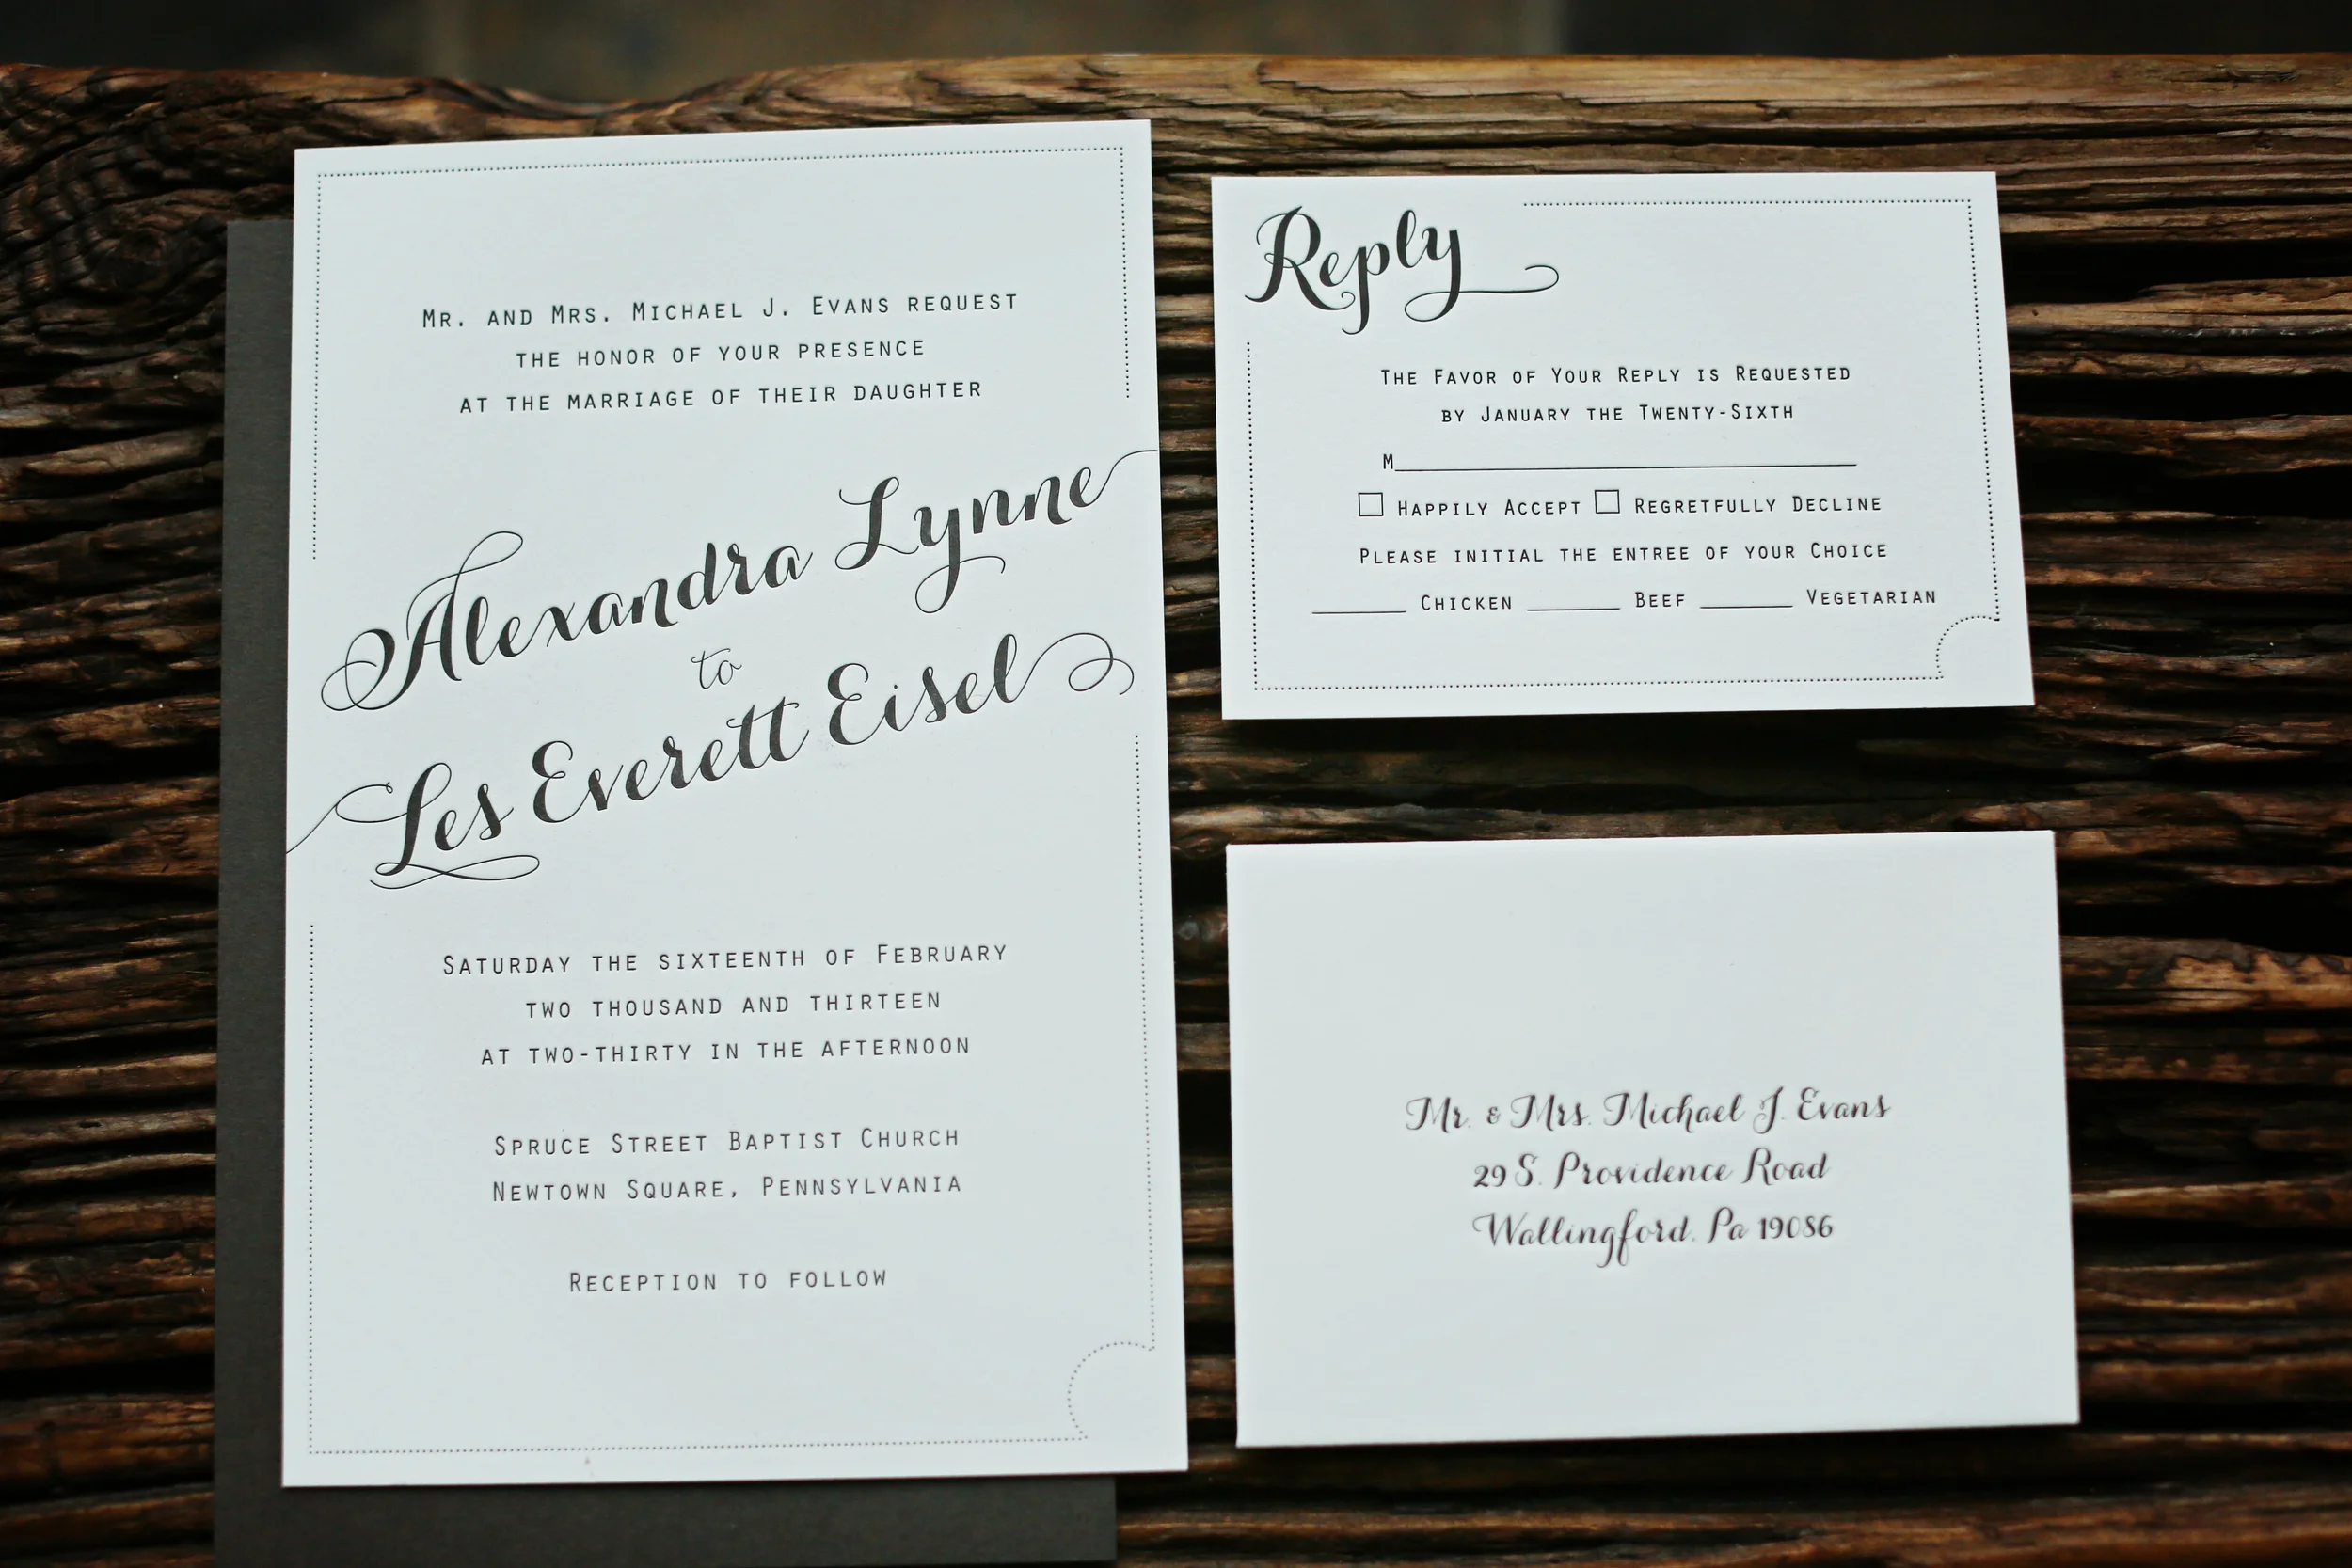 Mr. and Mrs. Michael J. Evans request
the honor of your presence
at the marriage of their daughter
Alexandra Lynne
to
Les Everett Eisel
Saturday the sixteenth of February
two thousand and thirteen
at two-thirty in the afternoon
Spruce Street Baptist Church
Newtown Square, Pennsylvania
Reception to follow
Reply
The Favor of Your Reply is Requested
by January the Twenty-Sixth
M____________________
☐ Happily Accept ☐ Regretfully Decline
Please initial the entree of your Choice
______ Chicken ______ Beef ______ Vegetarian
Mr. & Mrs. Michael J. Evans
29 S. Providence Road
Wallingford, Pa 19086